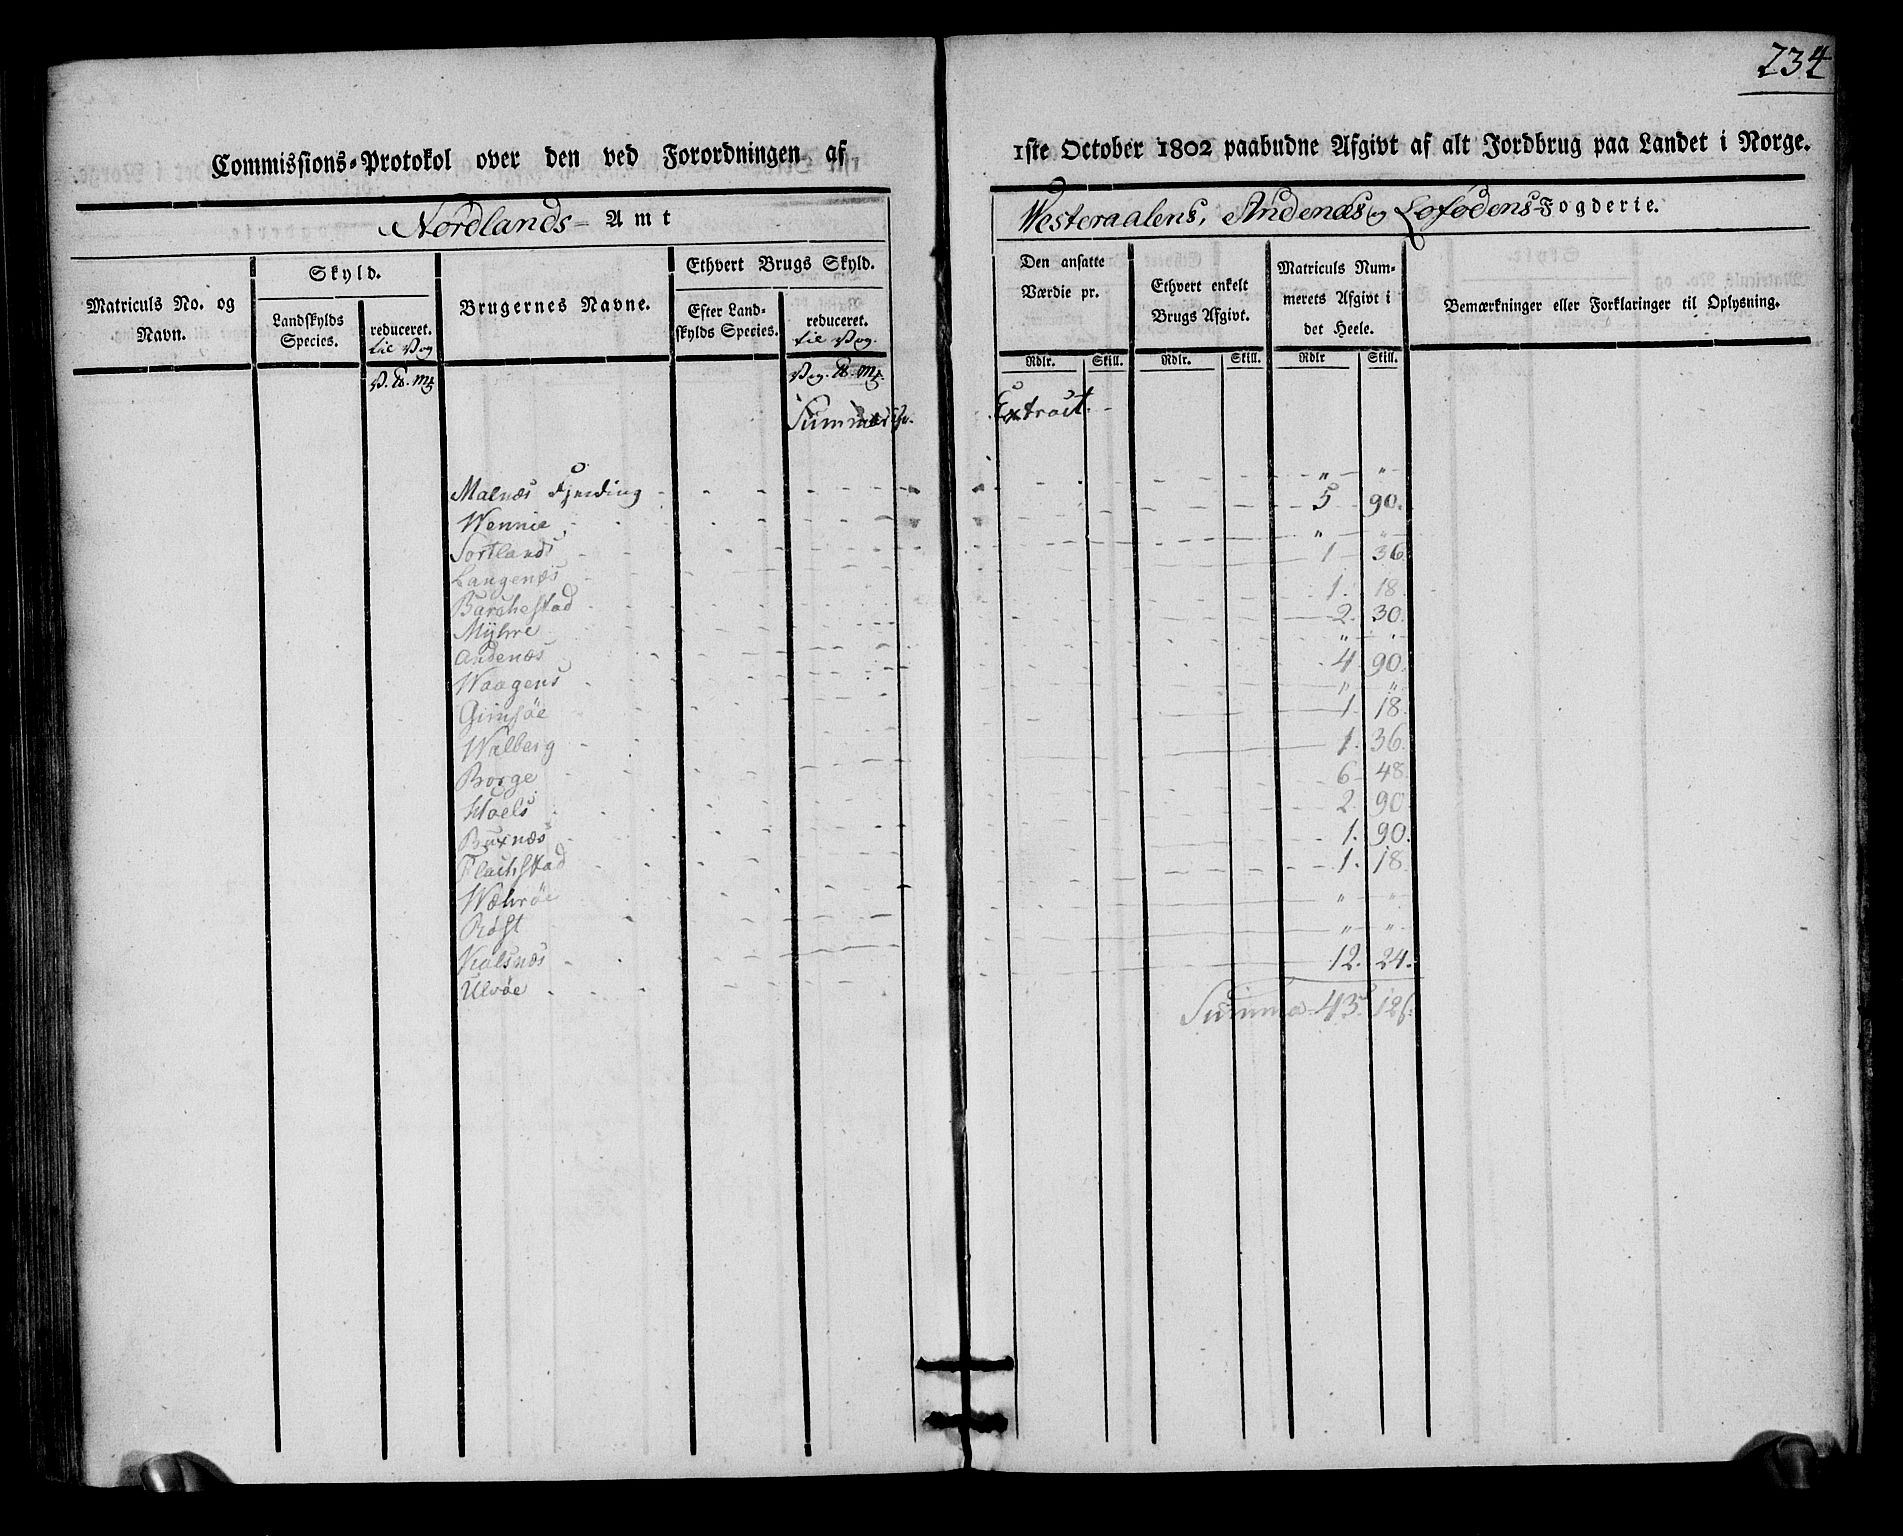 234
Commissions-Protokol over den ved Forordningen af 1ste October 1802 paabudne Afgivt af alt Jordbrug paa Landet i Norge.
Nordlands-Amt Westeraalens, Andenæs og Lofødens-Fogderie.
Matriculs No. og Navn.
Skyld.
Landskylds Species.
reduceret. til Vog
V. ℔. Mk
Brugernes Navne.
Ethvert Brugs Skyld.
Efter Landskylds Species.
reduceret. til Vog.
Vog. ℔. Mk.
Den ansatte Værdie pr.
Rdlr. Skill.
Ethvert enkelt Brugs Afgivt.
Rdlr. Skill.
Matriculs Nummerets Afgivt i det Heele.
Rdlr Skill.
Bemærkninger eller Forklaringer til Oplysning.
Extract.
Malnæs Fjerding " "
Wennie 5 90.
Sortlands " "
Langenæs 1 36
Barchestad 1. 18.
Myhre 2. 30.
Andenæs " "
Waagens 4. 90.
Gimsøe " "
Walberg 1. 18.
Borge 1. 36.
Hoels 6 48.
Buxnæs 2. 90
Flachstad 1. 90.
Wæhrøe 1. 18
Røst " "
Kialsnæs " "
Ulvøe 12. 24.
Summa 43 12ſ.